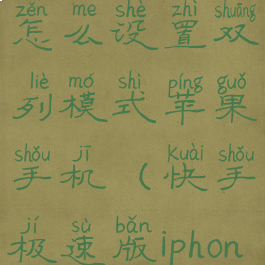 zěn me shè zhì shuāng
怎么设置双
liè mó shì píng guǒ
列模式苹果
shǒu jī kuài shǒu
手机（快手
jí sù bǎn
极速版iphon